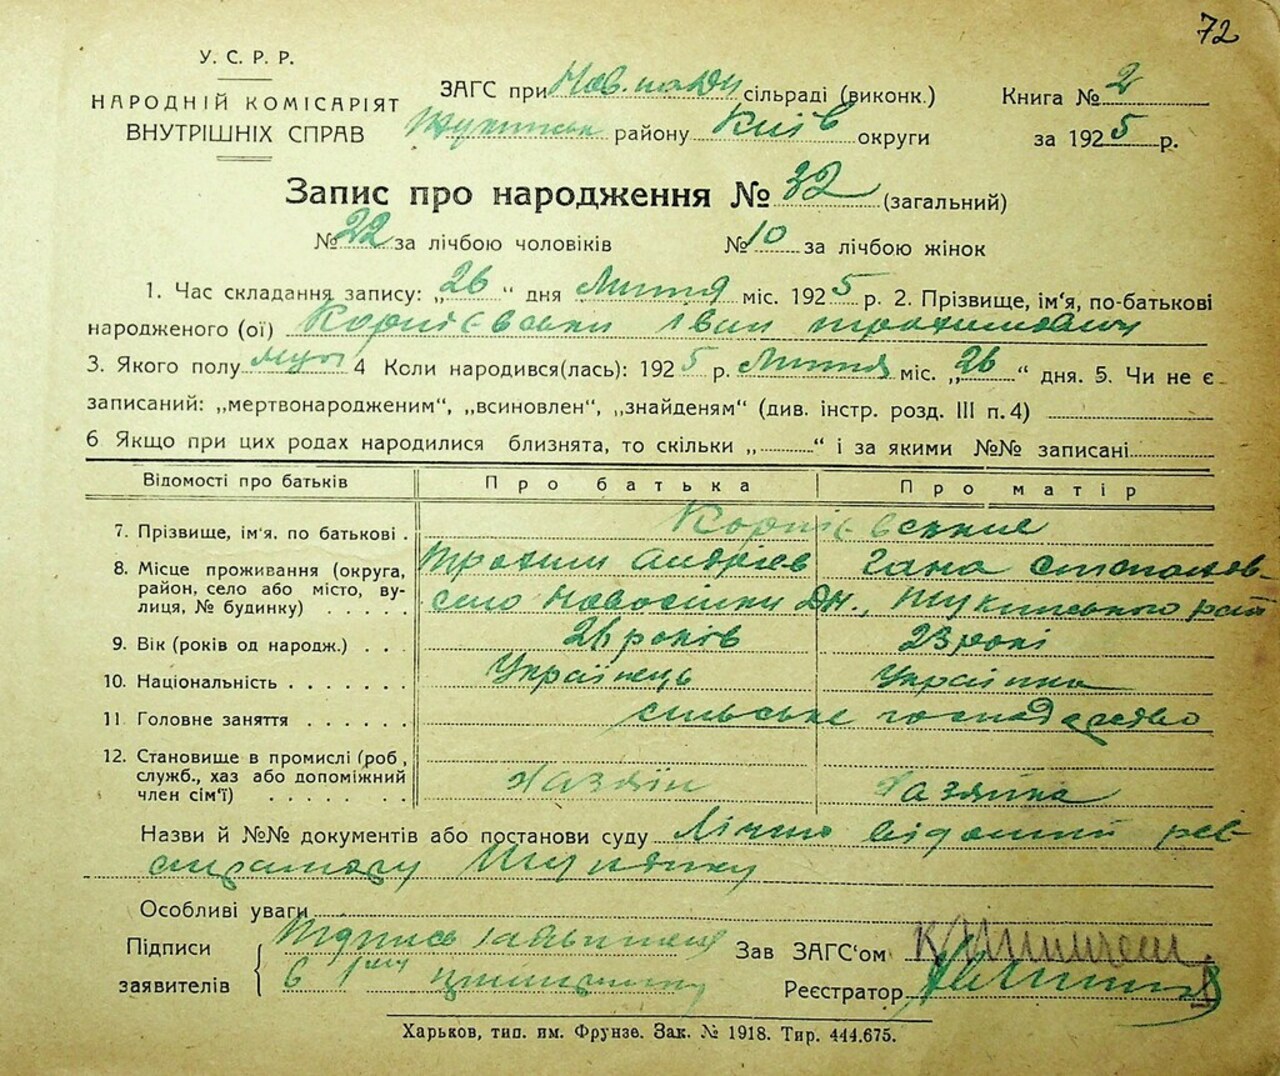 72
У. С. Р. Р.
НАРОДНІЙ КОМІСАРІЯТ
ВНУТРІШНІХ СПРАВ
ЗАГС при сільраді (виконк.)
району Київ округи
Книга № 2
за 1925 р.
Запис про народження № 32 (загальний)
№ 22 за лічбою чоловіків № 10 за лічбою жінок
1. Час складання запису: „26“ дня Лютня міс. 1925 р. 2. Прізвище, ім'я, по-батькові
народженого (ої) Корнієвський Іван Трохимович
3. Якого полу муж 4 Коли народився(лась): 1925 р. Лютня міс. „26“ дня. 5. Чи не є
записаний: „мертвонародженим“, „всиновлен“, „знайденям“ (див. інстр. розд. III п. 4)
6 Якщо при цих родах народилися близнята, то скільки „ “ і за якими №№ записані
Відомості про батьків Про батька Про матір
7. Прізвище, ім'я. по батькові . Корнієвськие
Трохим Андріев Гана Степанов
8. Місце проживання (округа,
район, село або місто, ву-
лиця, № будинку) . . . . .
село Новосілки Дн.,
9. Вік (років од народж.) . . . 26 років 23 рокі
10. Національність . . . . . . . Українець Українка
11 Головне заняття . . . . . . сильське господарство
12. Становище в промислі (роб,
служб., хаз або допоміжний
член сім'ї) . . . . . . . Хазяїн Хазяйка
Назви й №№ документів або постанови суду Лічно відомий
Особливі уваги
Підписи
заявителів
Підпись заявителя
в 1
Зав ЗАГС'ом
Реєстратор
Харьков, тип. им. Фрунзе. Зак. № 1918. Тир. 444.675.